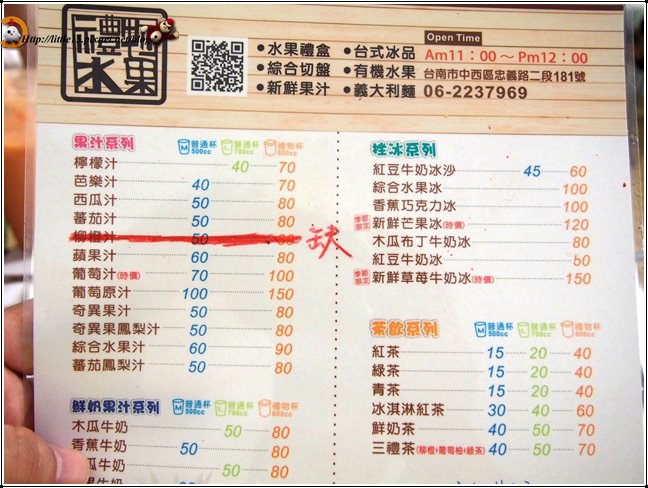 Http://little15.pixnet.net/blog
水果
•水果禮盒 •台式冰品
•綜合切盤 •有機水果
•新鮮果汁 •義大利麵
Open Time
Am11：00～Pm12：00
台南市中西區忠義路二段181號
06-2237969
果汁系列 M 普通杯 500cc L 普通杯 700cc 禮物杯 800cc
檸檬汁 40 70
芭樂汁 40 70
西瓜汁 50 80
蕃茄汁 50 80
柳橙汁 50 缺
蘋果汁 60 80
葡萄汁(時價) 70 100
葡萄原汁 100 150
奇異果汁 50 80
奇異果鳳梨汁 50 80
綜合水果汁 60 90
蕃茄鳳梨汁 50 80
鮮奶果汁系列 M 普通杯 500cc L 普通杯 700cc 禮物杯 800cc
木瓜牛奶 50 80
香蕉牛奶 50 80
瓜牛奶 50 80
牛奶
挫冰系列
紅豆牛奶冰沙 45 60
綜合水果冰 100
香蕉巧克力冰 100
季節限定 新鮮芒果冰(時價) 120
木瓜布丁牛奶冰 80
紅豆牛奶冰 60
季節限定 新鮮草莓牛奶冰(時價) 150
茶飲系列 M 普通杯 500cc L 普通杯 700cc 禮物杯 800cc
紅茶 15 20 40
綠茶 15 20 40
青茶 15 20 40
冰淇淋紅茶 30 40 60
鮮奶茶 40 50 70
三禮茶(柳橙+葡萄柚+綠茶) 40 50 70